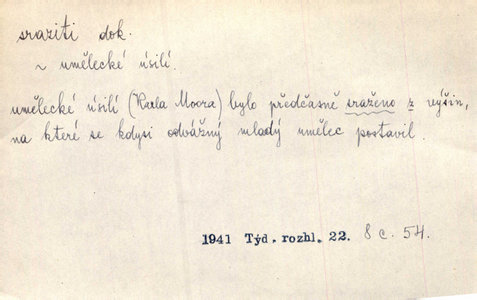 sraziti dok.
~ umělecké úsilí.
umělecké úsilí (Karla Moora) bylo předčasně sraženo z výšin,
na které se kdysi odvážný mladý umělec postavil.
1941 Týd. rozhl. 22. 8 c. 54.